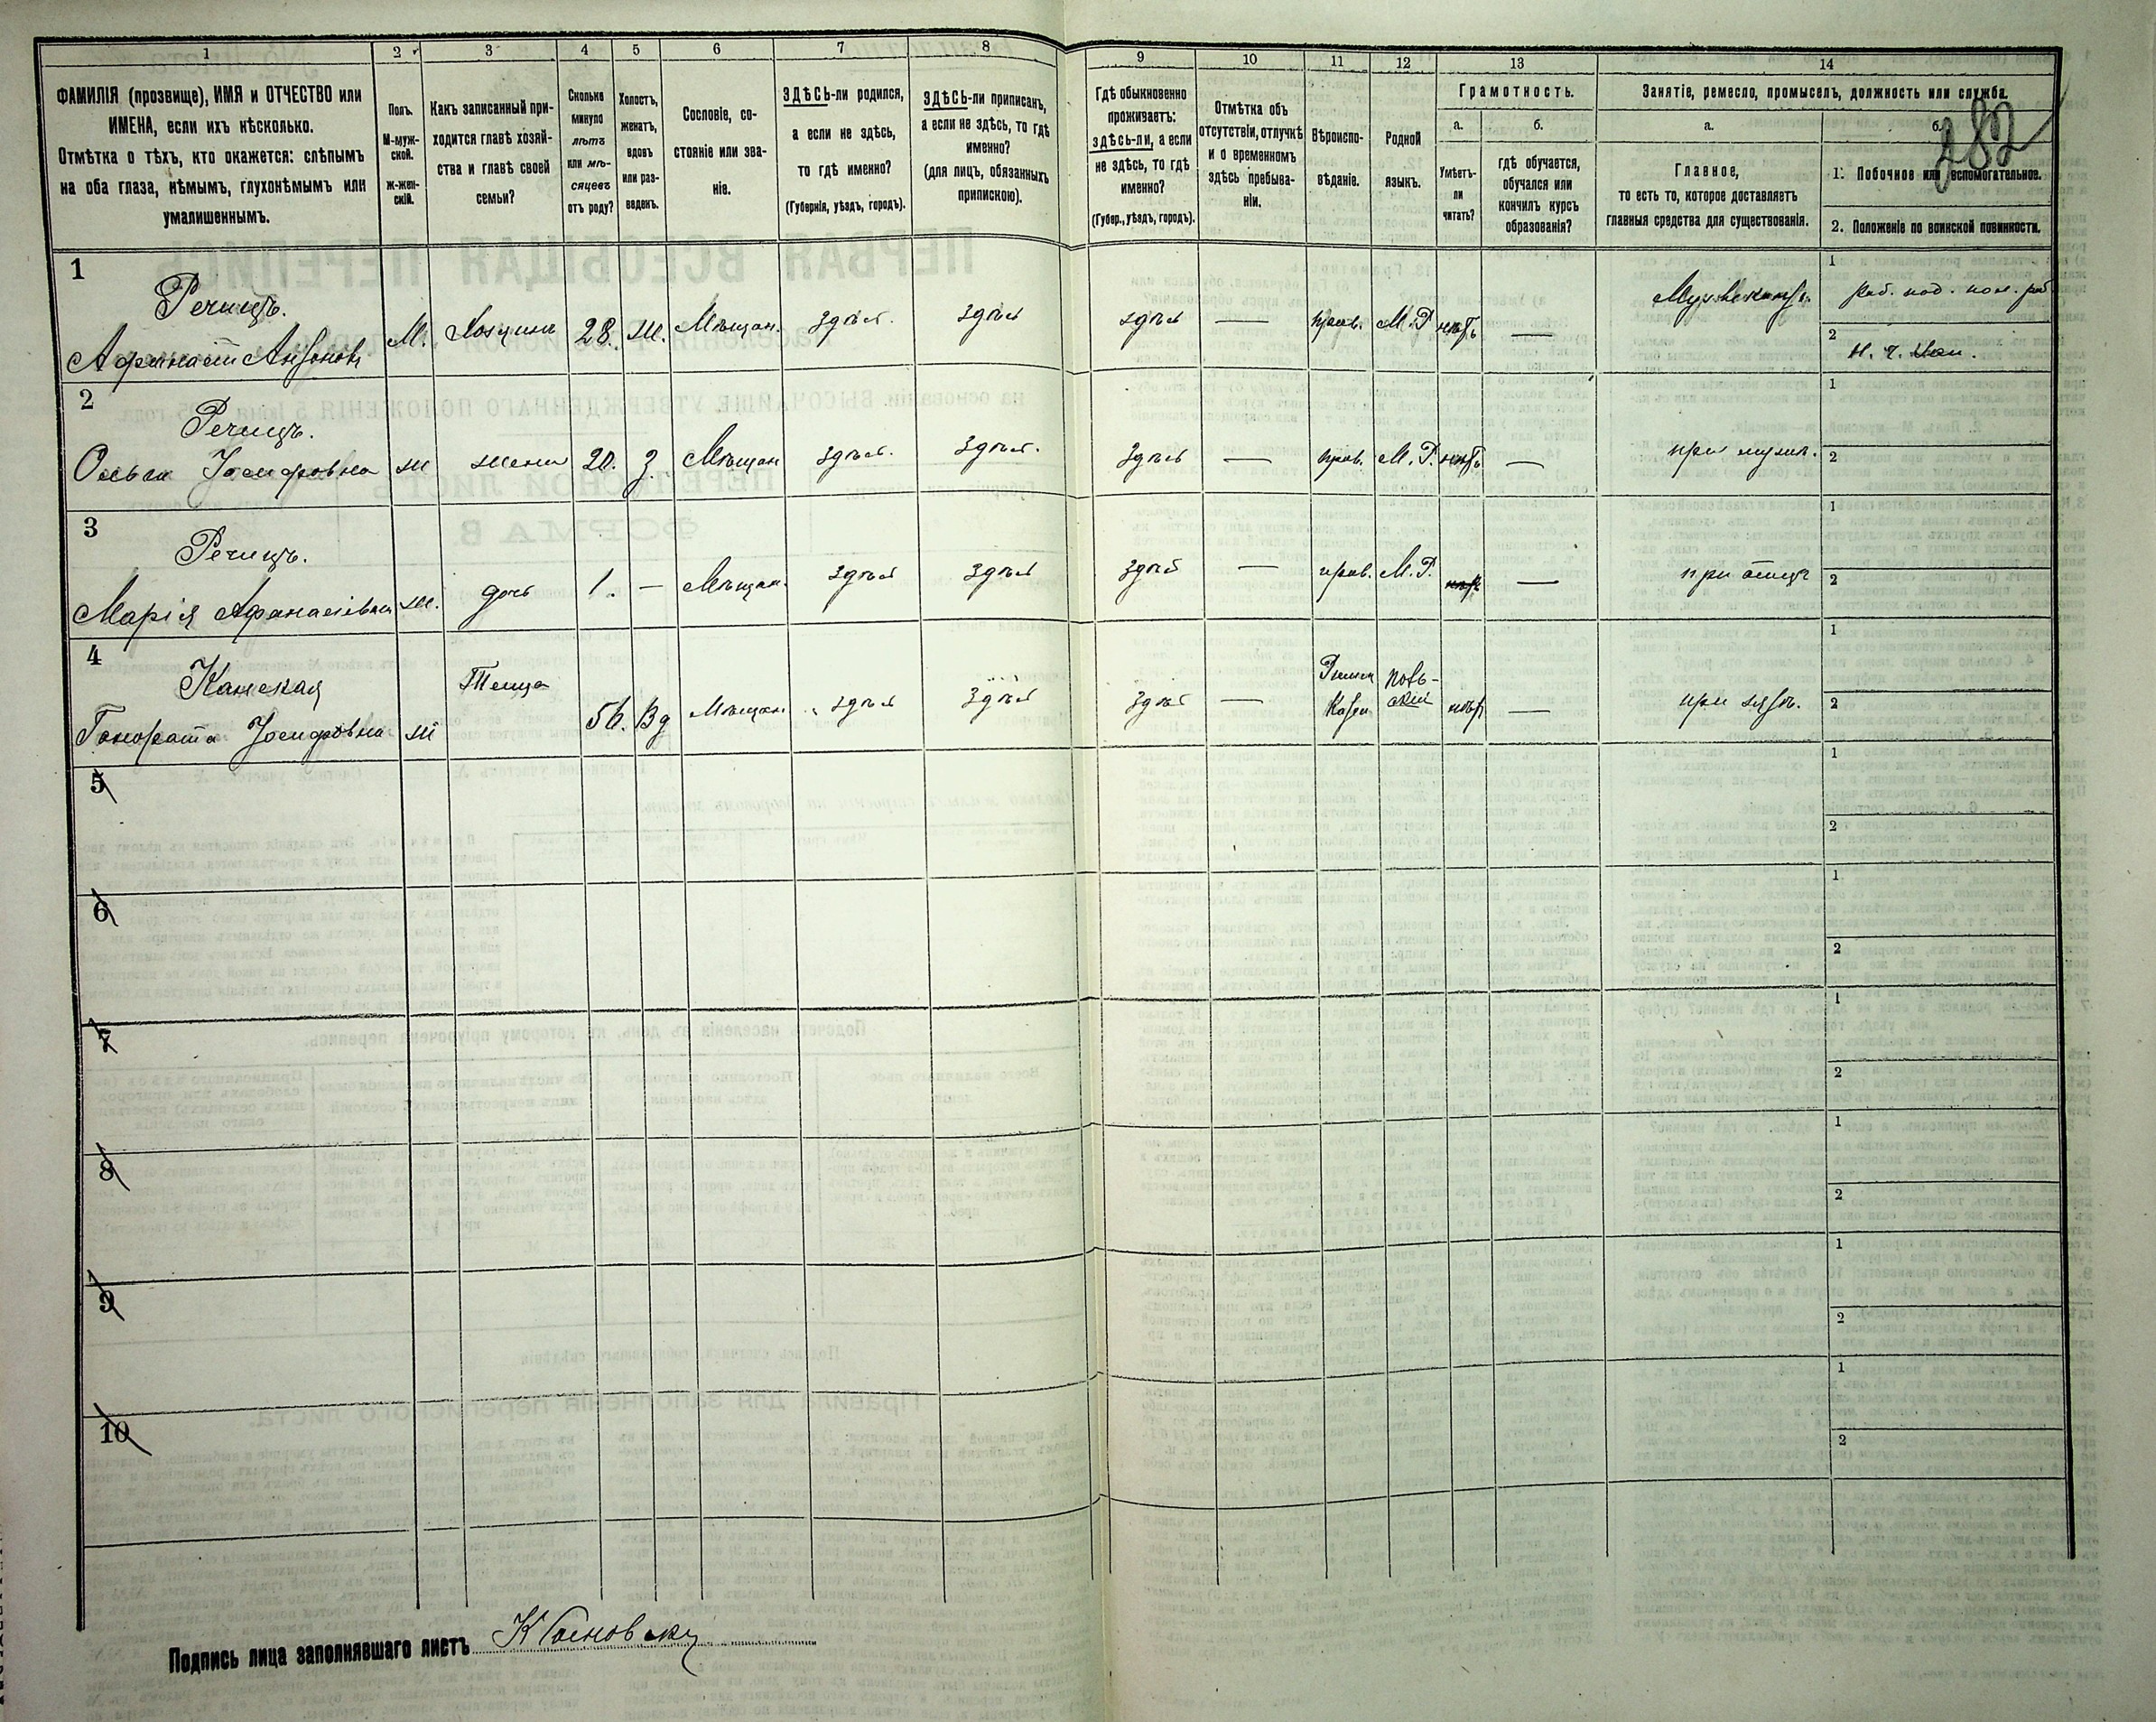 1
2
3
4
5
6
7
8
ФАМИЛІЯ (прозвище), ИМЯ и ОТЧЕСТВО или
ИМЕНА, если ихъ нѣсколько.
Отмѣтка о тѣхъ, кто окажется: слѣпымъ
на оба глаза, нѣмымъ, глухонѣмымъ или
умалишеннымъ.
Полъ.
М-муж-
ской.
ж-жен-
скій.
Какъ записанный при-
ходится главѣ хозяй-
ства и главѣ своей
семьи?
Сколько
минуло
лѣтъ
или мѣ-
сяцевъ
отъ роду?
Холостъ,
женатъ,
вдовъ
или раз-
веденъ.
Сословіе, со-
стояніе или зва-
ніе.
ЗДѢСЬ-ли родился,
а если не здѣсь,
то гдѣ именно?
(Губернія, уѣздъ, городъ).
ЗДѢСЬ-ли приписанъ,
а если не здѣсь, то гдѣ
именно?
(для лицъ, обязанныхъ
припискою).
9
10
11
12
13
14
Гдѣ обыкновенно
проживаетъ:
здѣсь-ли, а если
не здѣсь, то гдѣ
именно?
(Губер., уѣздъ, городъ).
Отмѣтка объ
отсутствіи, отлучкѣ
и о временномъ
здѣсь пребыва-
ніи.
Вѣроиспо-
вѣданіе.
Родной
языкъ.
Грамотность.
а.
б.
Умѣетъ-
ли
читать?
гдѣ обучается,
обучался или
кончилъ курсъ
образованія?
Занятіе, ремесло, промыселъ, должность или служба.
а.
б.
282
Главное,
то есть то, которое доставляетъ
главныя средства для существованія.
1. Побочное или вспомогательное.
2. Положеніе по воинской повинности.
1
Речицъ.
Афанасій Антоновъ
М. Хозяинъ 28. ж. Мѣщан. здѣсь. здѣсь
здѣсь — прав. М.Р нѣтъ —
Музыкантъ
1
2
2
Речицъ.
Ольга Іосифовна ж жена 20. З. Мѣщан здѣсь. здѣсь.
здѣсь — прав. М.Р. нѣтъ —
при мужѣ.
1
2
3
Речицъ.
Марія Афанасіевна ж. дочь 1. — Мѣщан. здѣсь здѣсь
здѣсь — прав. М.Р. нѣтъ —
при отцѣ
1
2
4
Канская
Гонората Іосифовна ж Теща 56. Вд Мѣщан здѣсь здѣсь
здѣсь — Римск
Като
поль-
скій
нѣтъ —
при зятѣ.
1
2
5
1
2
6
1
2
7
1
2
8
1
2
9
1
2
10
1
2
Подпись лица заполнявшаго листъ